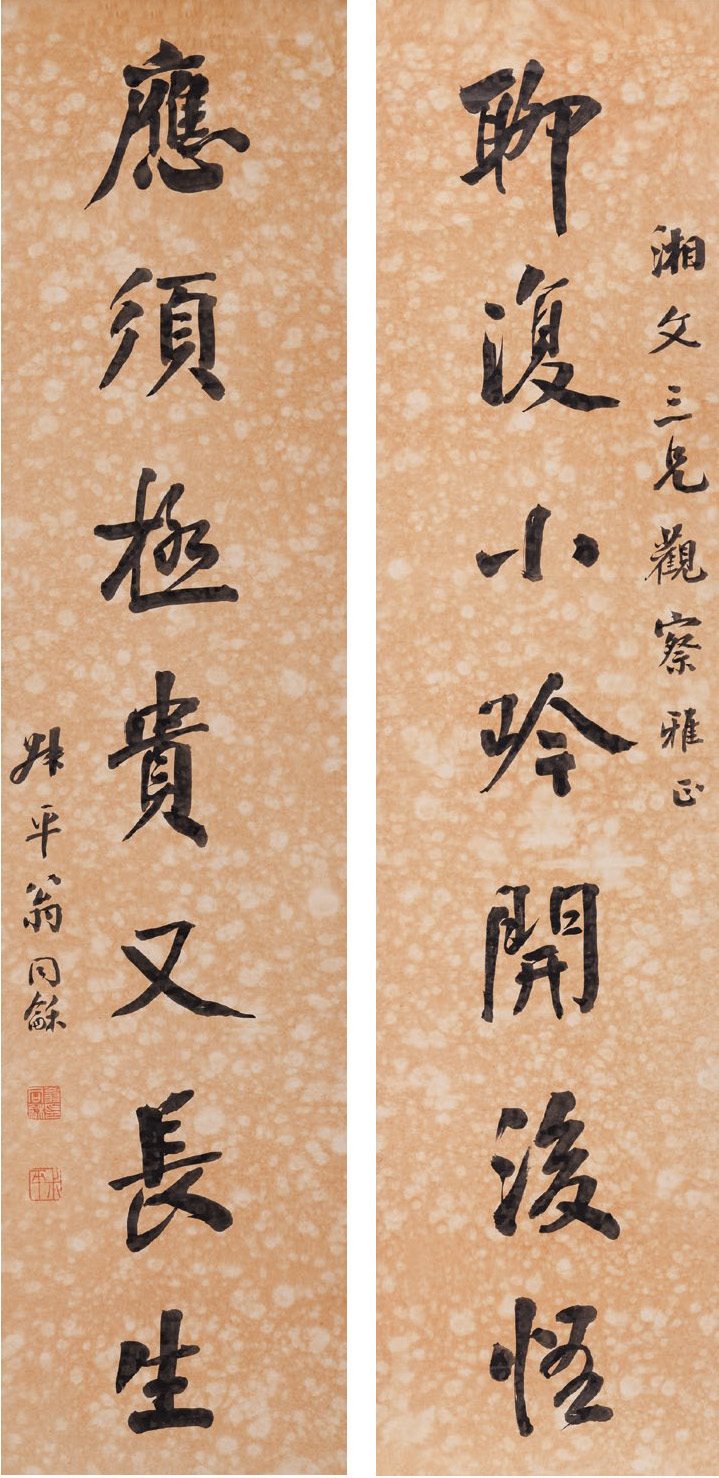 湘文三兄觀察雅正
聊復小吟開後悟
應須極貴又長生
叔平翁同龢